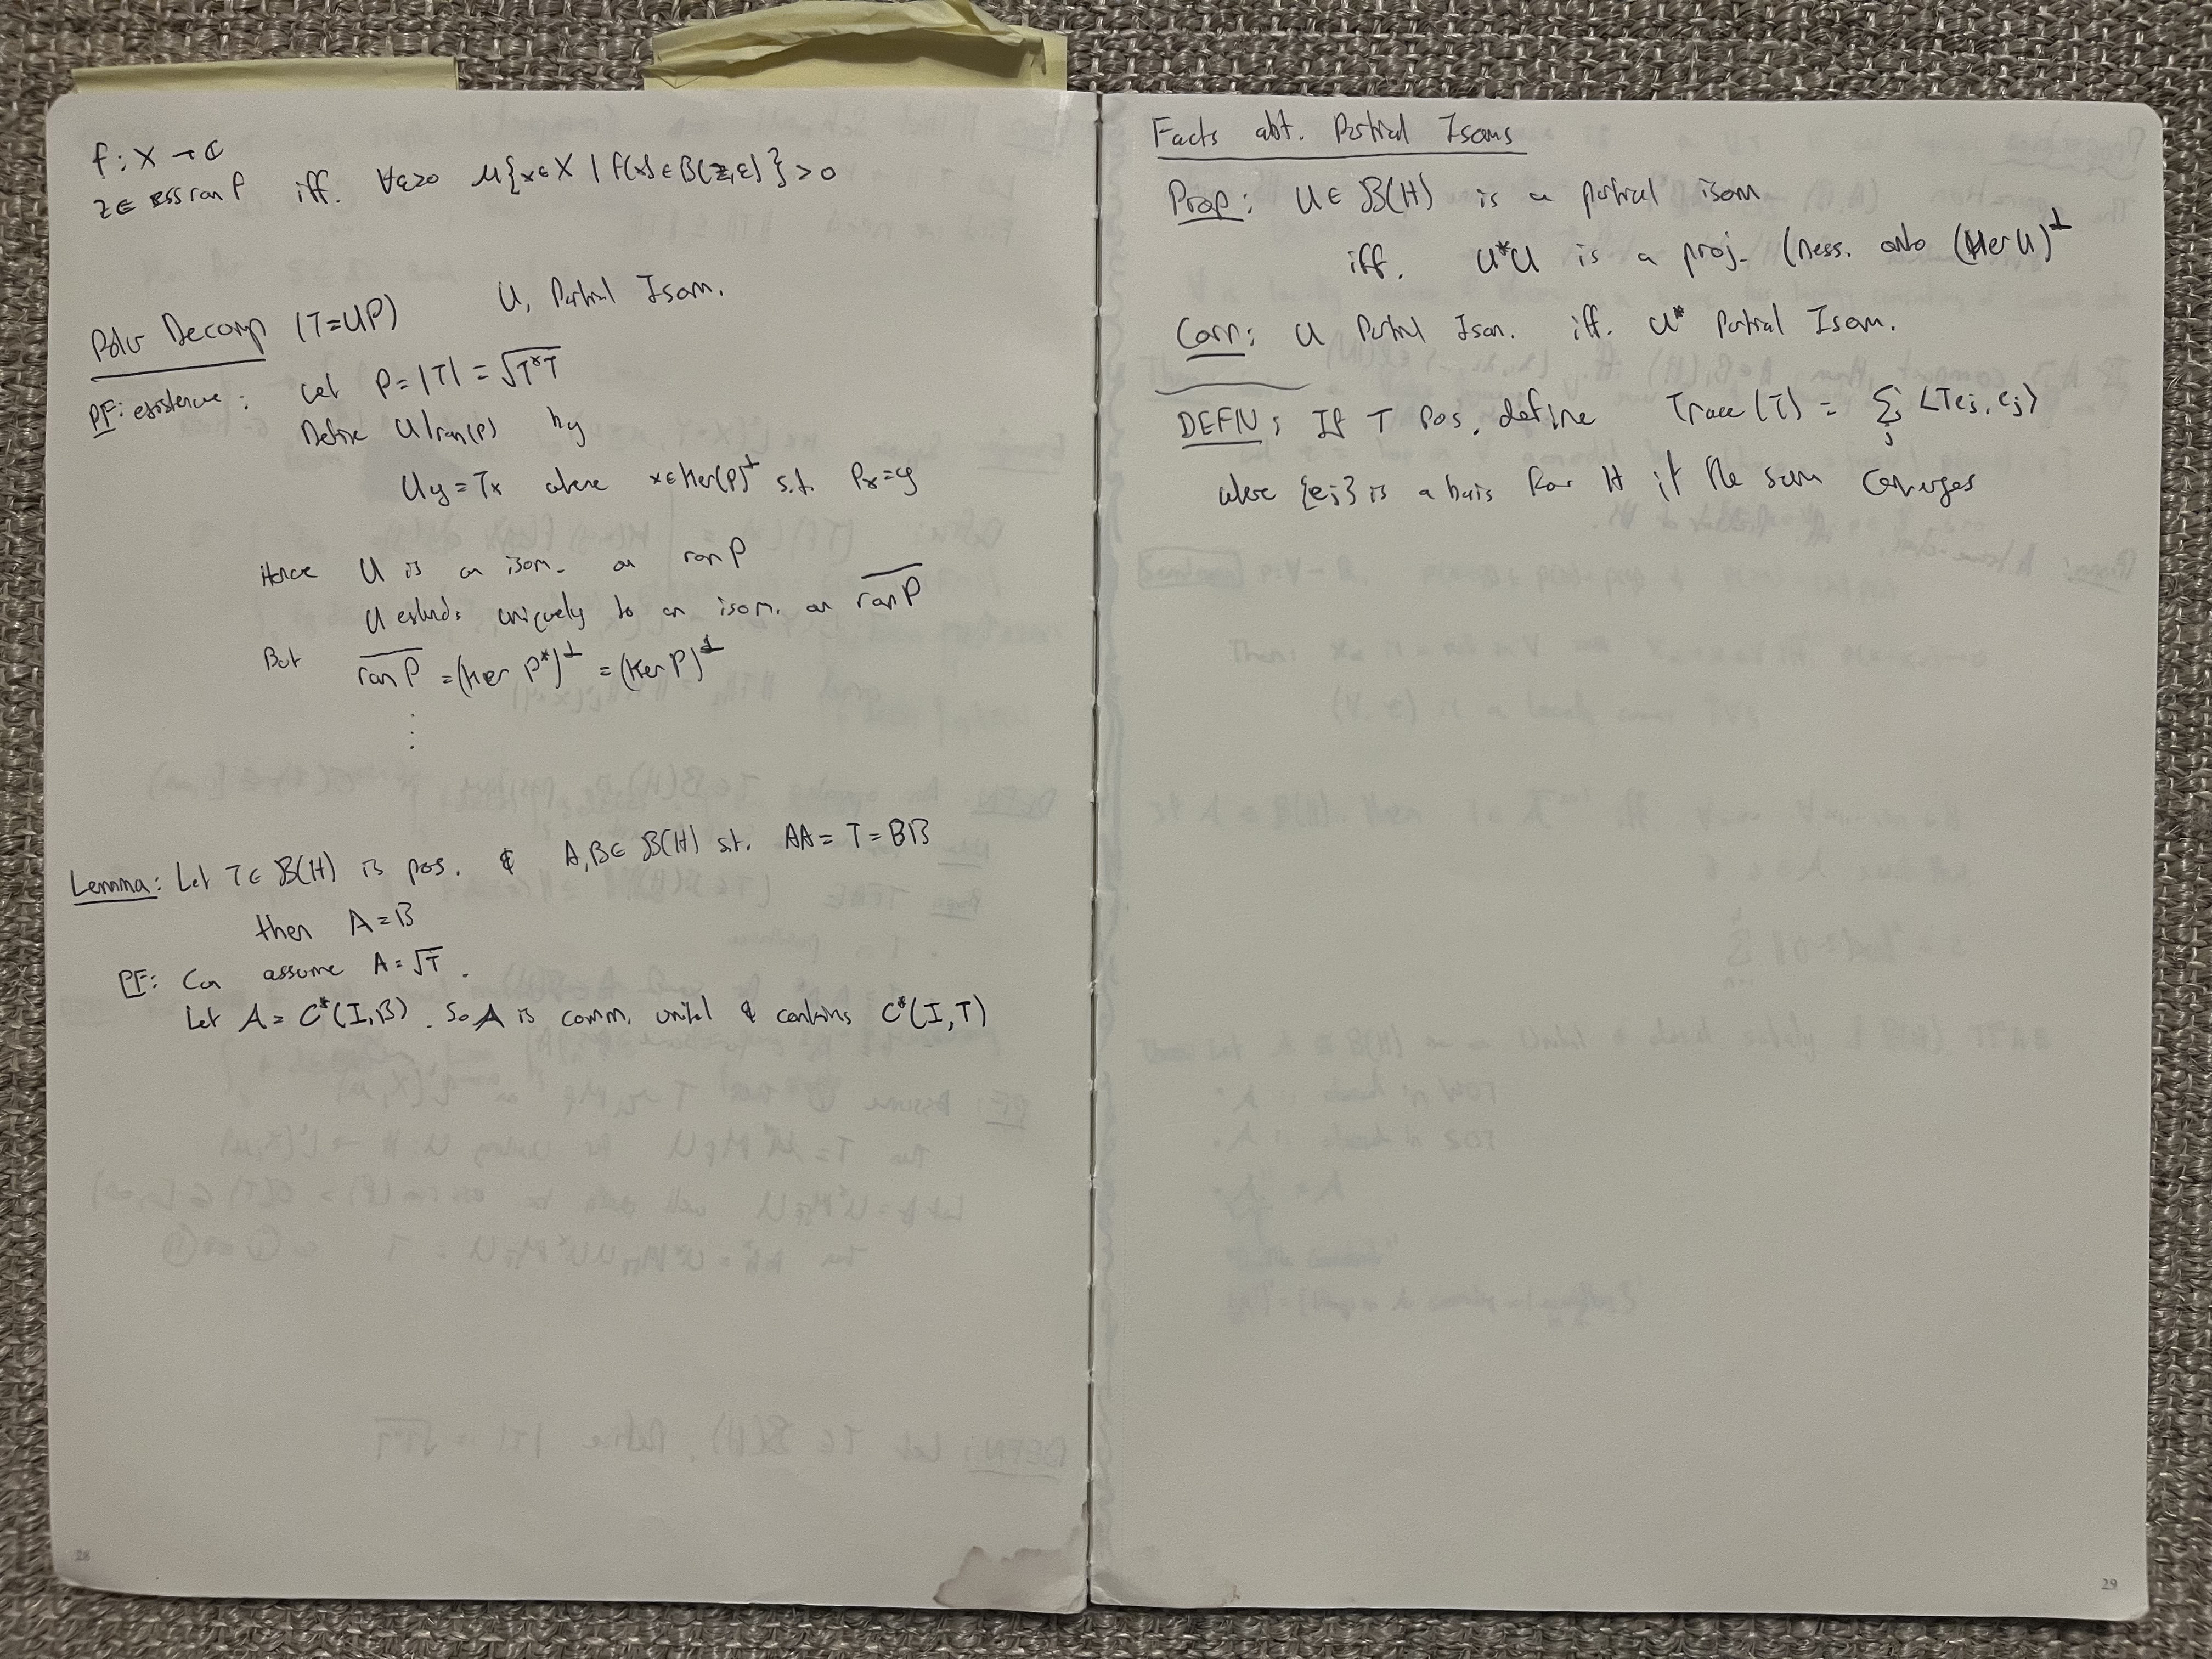 f: X → ℂ
z ∈ ess ran f iff. ∀ε>0 μ{x∈X | f(x) ∈ B(z,ε)} > 0
Polar Decomp (T=UP) U, Partial Isom.
PF: existence: Let P = |T| = √T*T
Define U|ran(P) by
Uy = Tx where x∈ker(P)⊥ s.t. Px=y
Hence U is an isom. on ran P
U extends uniquely to an isom. on \overline{ran P}
But \overline{ran P} = (ker P*)⊥ = (ker P)⊥
⋮
Lemma: Let T∈ B(H) is pos. & A,B∈ B(H) s.t. AA = T = BB
then A=B
PF: Can assume A = √T.
Let A = C*(I,B). So A is comm, unital & contains C*(I,T)
28
Facts abt. Partial Isoms
Prop: U∈ B(H) is a partial isom
iff. U*U is a proj. (ness. onto (ker U)⊥
Corr: U Partial Isom. iff. U* Partial Isom.
DEFN: If T pos, define Trace(T) = Σ_j ⟨Te_j, e_j⟩
where {e_j} is a basis for H if the sum Converges
29